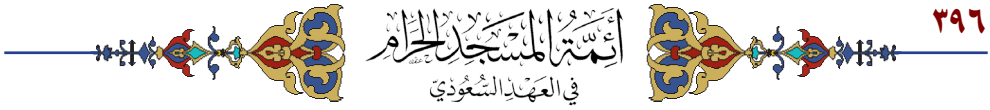 ٣٩٦
أَئِمَّةُ المَسْجِدِ الحَرَامِ
في العَهْدِ السُّعُودِيّ